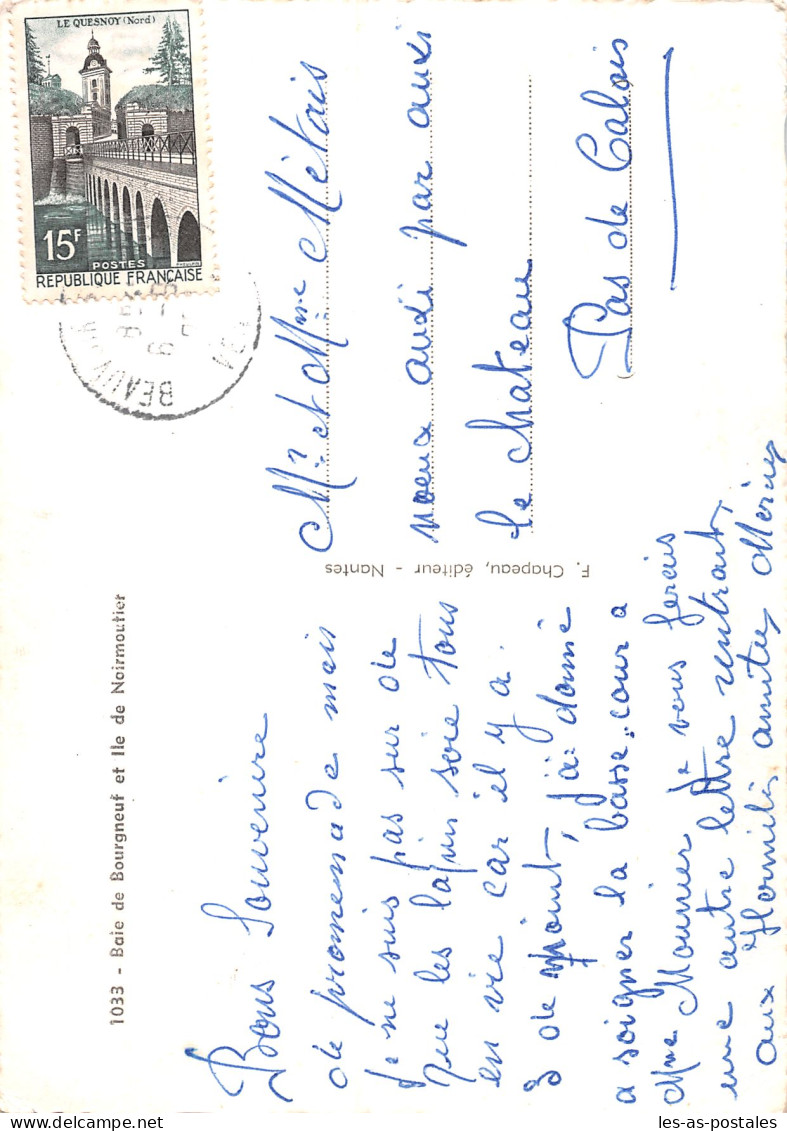 LE QUESNOY (Nord)
15F
POSTES
REPUBLIQUE FRANÇAISE
BEAUV
1033 - Baie de Bourgneuf et Ile de Noirmoutier
F. Chapeau, éditeur - Nantes
Bons Souvenire
de promenade mais
je ne suis pas sur de
que les lapin soie tous
en vie car il y a
3 de mort, j'ai donné
a soigner la basse-cour a
Mme Mounier je vous ferais
une autre lettre rentrant,
aux amitiés
Mr et Mme Métais
noeux audi par auxi
le chateau
Pas de Calais
www.les-as-postales.com